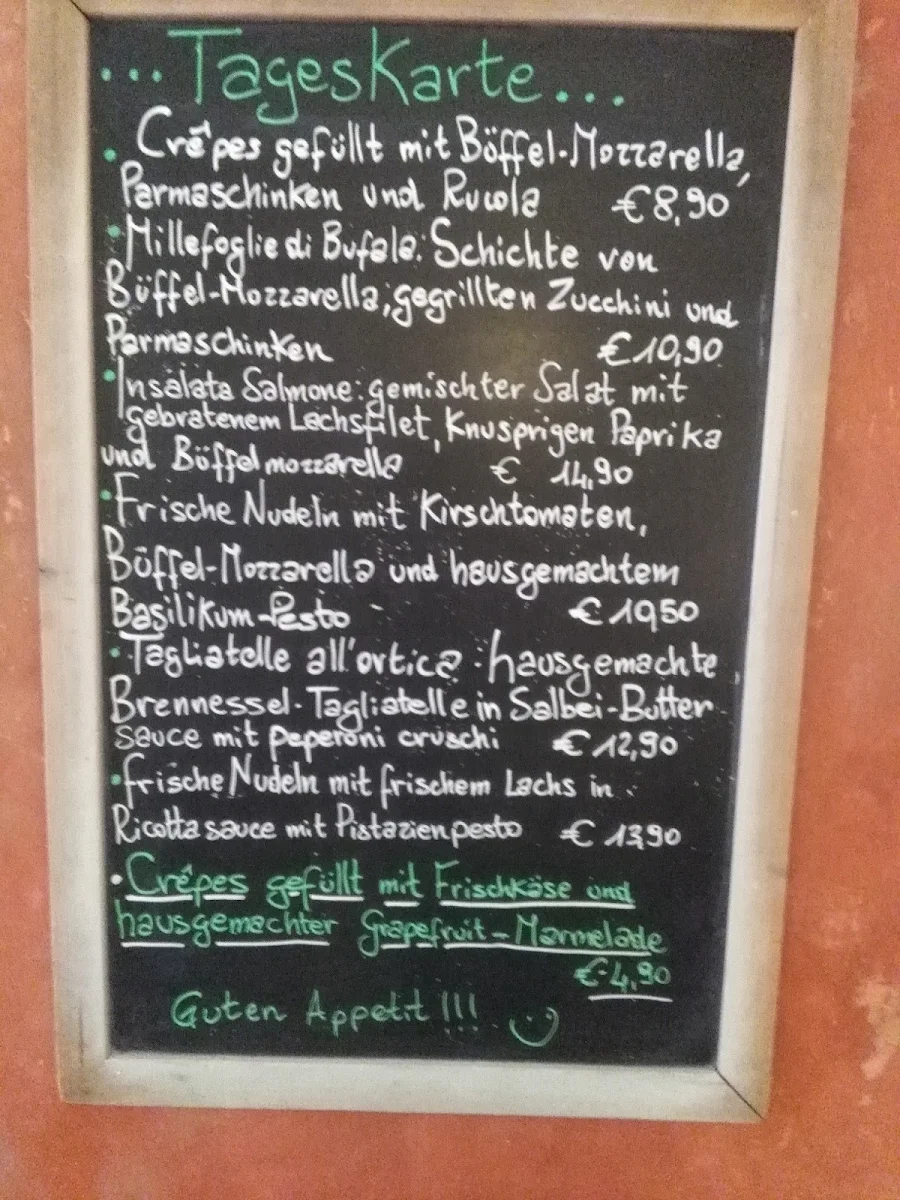 ...TagesKarte...
• Crêpes gefüllt mit Büffel-Mozzarella,
Parmaschinken und Rucola €8,90
• Millefoglie di Bufala: Schichte von
Büffel-Mozzarella, gegrillten Zucchini und
Parmaschinken €10,90
• Insalata Salmone: gemischter Salat mit
gebratenem Lachsfilet, Knusprigen Paprika
und Büffelmozzarella € 14,90
• Frische Nudeln mit Kirschtomaten,
Büffel-Mozzarella und hausgemachtem
Basilikum-Pesto € 10,50
• Tagliatelle all'ortica - hausgemachte
Brennessel-Tagliatelle in Salbei-Butter
sauce mit peperoni cruschi € 12,90
• frische Nudeln mit frischem Lachs in
Ricotta sauce mit Pistazienpesto € 13,90
• Crêpes gefüllt mit Frischkäse und
hausgemachter Grapefruit-Marmelade
€ 4,90
Guten Appetit!!!